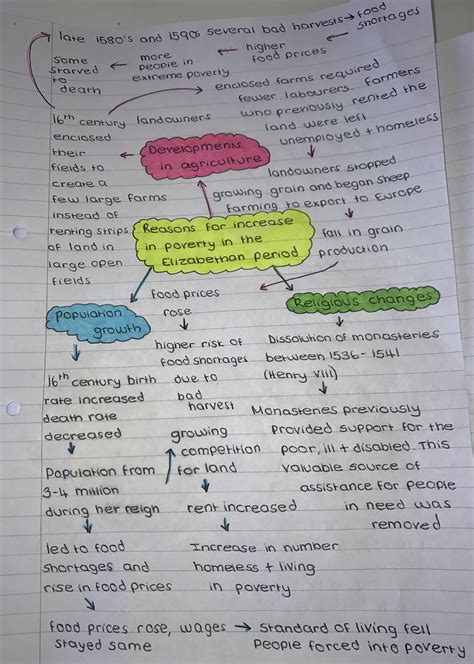 late 1580's and 1590s several bad harvests → food
shortages
higher
food prices
more
people in
extreme poverty
some
starved
to
death
enclosed farms required
fewer labourers. Farmers
who previously rented the
land were left
unemployed + homeless
16th century landowners
enclosed
their
fields to
create a
few large farms
instead of
renting strips
of land in
large open
fields
Developments
in agriculture
landowners stopped
growing grain and began sheep
farming to export to Europe
fall in grain
production
Reasons for increase
in poverty in the
Elizabethan period
food prices
rose
higher risk of
food shortages
due to
bad
harvest
growing
competition
for land
rent increased
Increase in number
homeless + living
in poverty
Population
growth
16th century birth
rate increased
death rate
decreased
Population from
3-4 million
during her reign
led to food
shortages and
rise in food prices
food prices rose, wages → standard of living fell
stayed same
People forced into poverty
Religious changes
Dissolution of monasteries
between 1536 - 1541
(Henry VIII)
Monasteries previously
provided support for the
poor, ill + disabled. This
valuable source of
assistance for people
in need was
removed